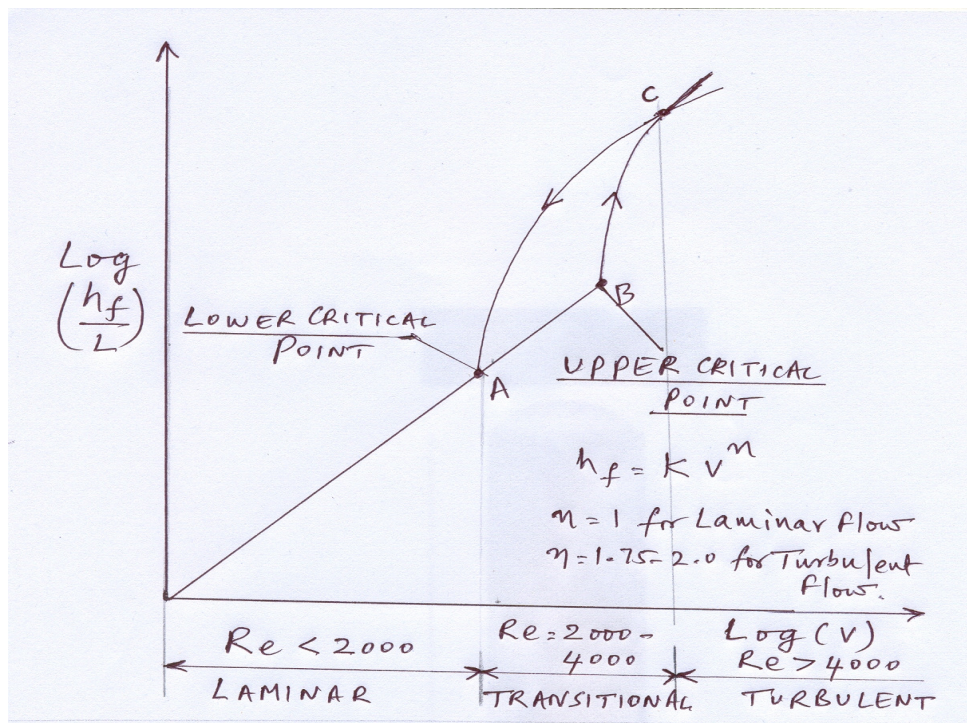 C
Log
(hf/L)
LOWER CRITICAL
POINT
A
B
UPPER CRITICAL
POINT
hf = K v^n
n = 1 for Laminar flow
n = 1.75 - 2.0 for Turbulent
flow.
Log (V)
Re < 2000
Re = 2000 -
4000
Re > 4000
LAMINAR
TRANSITIONAL
TURBULENT